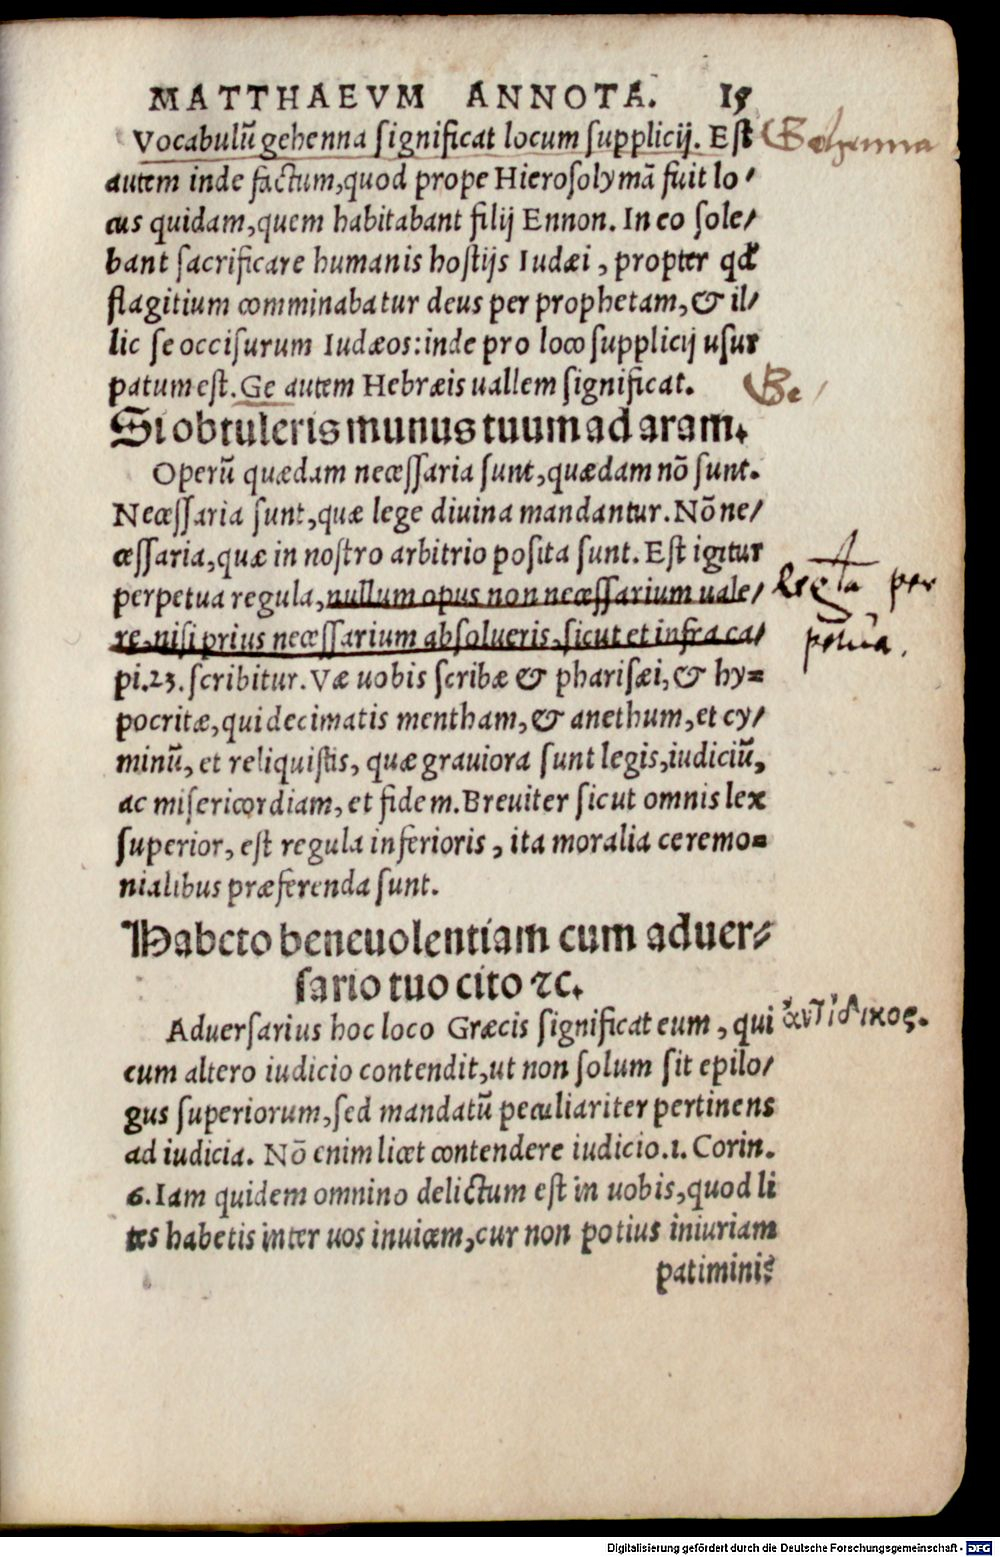 MATTHAEVM ANNOTA. 15
Vocabulũ gehenna significat locum supplicij. Est Gehenna
autem inde factum, quod prope Hierosolymã fuit lo/
cus quidam, quem habitabant filij Ennon. In eo sole/
bant sacrificare humanis hostijs Iudæi, propter qđ
flagitium comminabatur deus per prophetam, & il/
lic se occisurum Iudæos: inde pro loco supplicij usur
patum est. Ge autem Hebræis uallem significat. Ge
Si obtuleris munus tuum ad aram.
Operũ quædam necessaria sunt, quædam nõ sunt.
Necessaria sunt, quæ lege diuina mandantur. Nõ ne/
cessaria, quæ in nostro arbitrio posita sunt. Est igitur
perpetua regula, nullum opus non necessarium uale/ Regla per
re, nisi prius necessarium absolueris, sicut et infra ca/ petua.
pi. 23. scribitur. Væ uobis scribæ & pharisæi, & hy=
pocritæ, qui decimatis mentham, & anethum, et cy/
minũ, et reliquistis, quæ grauiora sunt legis, iudiciũ,
ac misericordiam, et fidem. Breuiter sicut omnis lex
superior, est regula inferioris, ita moralia ceremo=
nialibus præferenda sunt.
Habeto beneuolentiam cum aduer⸗
sario tuo cito ⁊c.
Aduersarius hoc loco Græcis significat eum, qui ἀντίδικος.
cum altero iudicio contendit, ut non solum sit epilo/
gus superiorum, sed mandatũ peculiariter pertinens
ad iudicia. Nõ enim licet contendere iudicio. 1. Corin.
6. Iam quidem omnino delictum est in uobis, quod li
tes habetis inter uos inuicem, cur non potius iniuriam
patimini?
Digitalisierung gefördert durch die Deutsche Forschungsgemeinschaft - DFG